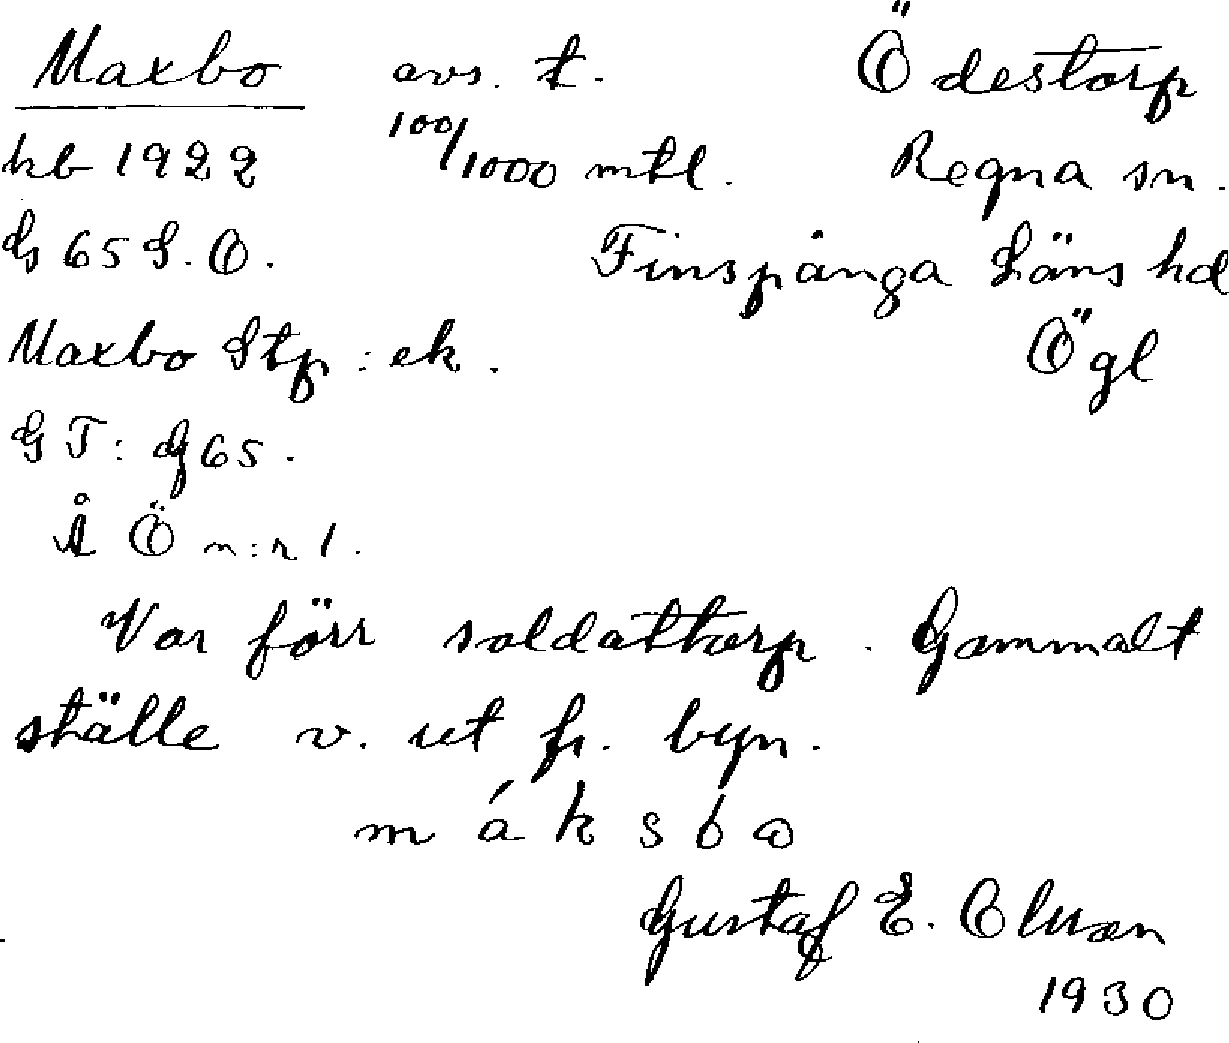 Maxbo avs. t. Ödestorp
hb 1922 100/1000 mtl. Regna sn.
G 65 S.O. Finspånga Läns hd
Maxbo Stp: ek. Ögl
GT: G 65.
Å Ö n:r 1.
Var förr soldattorp. Gammalt
ställe v. ut fr. byn.
m á k s b ω
Gustaf E. Olsson
1930